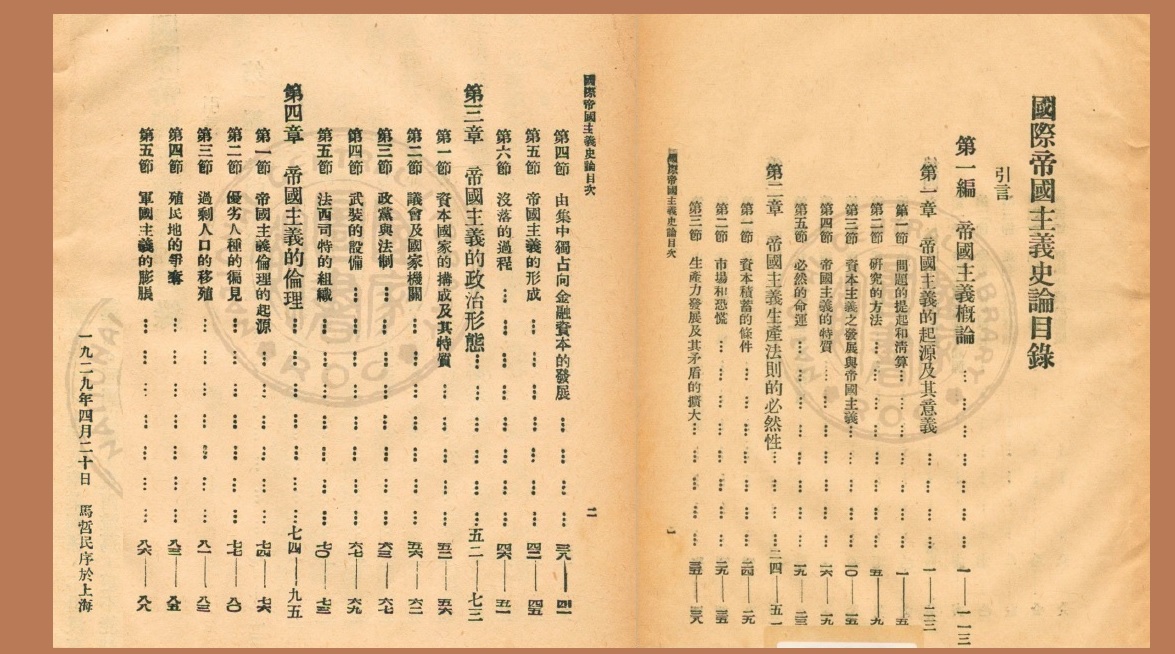 國際帝國主義史論目錄
引言
第一編 帝國主義概論…………一——一一三
第一章 帝國主義的起源及其意義………一——二三
第一節 問題的提起和清算…………一——五
第二節 研究的方法…………五——九
第三節 資本主義之發展與帝國主義…………一〇——一五
第四節 帝國主義的特質…………一六——一九
第五節 必然的命運…………一九——二三
第二章 帝國主義生產法則的必然性…………二四——五一
第一節 資本積蓄的條件…………二四——二九
第二節 市場和恐慌…………二九——三五
第三節 生產力發展及其矛盾的擴大…………三五——三八
國際帝國主義史論目次
一
國際帝國主義史論目次
二
第四節 由集中獨占向金融資本的發展…………三九——四一
第五節 帝國主義的形成…………四二——四五
第六節 沒落的過程…………四六——五一
第三章 帝國主義的政治形態…………五二——七三
第一節 資本國家的構成及其特質…………五二——五六
第二節 議會及國家機關…………五六——六二
第三節 政黨與法制…………六三——六七
第四節 武裝的設備…………六七——六九
第五節 法西司特的組織…………七〇——七三
第四章 帝國主義的倫理…………七四——九五
第一節 帝國主義倫理的起源…………七四——七六
第二節 優劣人種的偏見…………七七——八〇
第三節 過剩人口的移殖…………八一——八三
第四節 殖民地的爭奪…………八三——八五
第五節 軍國主義的膨脹…………八六——八九
一九二九年四月二十日 馬哲民序於上海